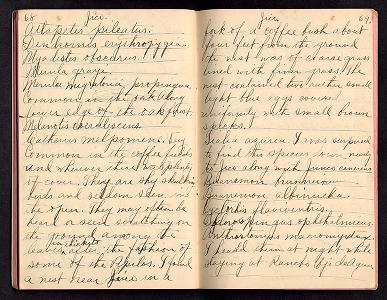 68 Jico.
Atlapetes pileatus.
Dendrornis erythropygia
Myadistes obscurus.
Merula grayi.
Merula migratoria propinqua.
Common in the oak along
lower edge of the oak forest.
Melanotis caerulescens
Catharus melpomene. Very
Common in the coffee fields
and wherever there is plenty
of cover. They are shy skulking
birds and seldom seen in
the open. They may often be
heard or seen scratching on
the ground among the
leaves in thickets after the fashion of
some of the Pipilos. I found
a nest near Jico in a
Jico 69
fork of a coffee bush about
four feet from the ground
the nest was of coarse grass
lined with finer grass, the
nest contained two rather small
light blue eggs covered
uniformly with small brown
specks.
Sialia azurea I was surprised
to find this species down nearly
to Jico along with Junco cinereus
Buarremon brunneinucha
Buarremon albinucha
Cyclorhis flaviventris.
Chlorospingus ophthalmicus.
Antrostomus macromystax.
I heard them at night while
staying at Rancho Oji de Agua